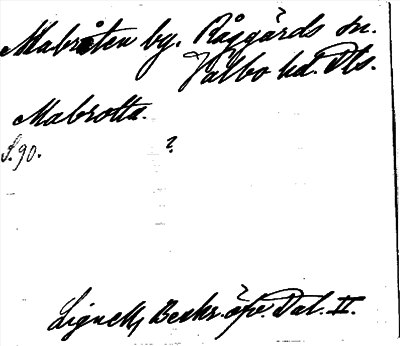 Mabråten by. Råggärds sn.
Valbo hd. Dls.
Mabrotta.
S. 90. ?
Lignell, Beskr. öfv. Dal. II.